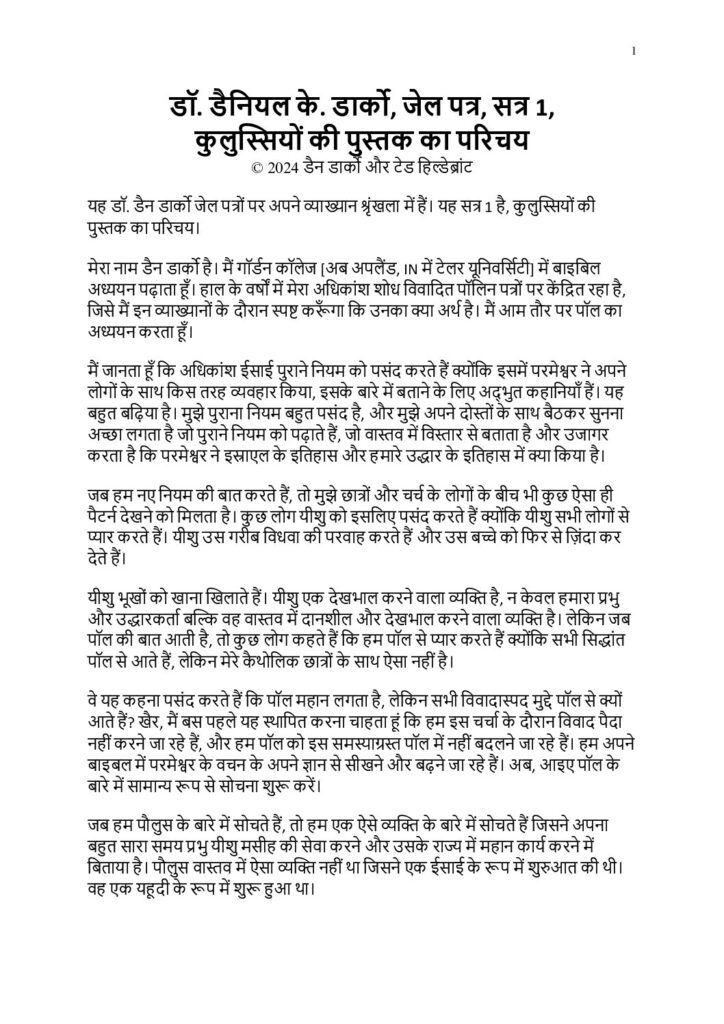 1
डॉ. डैनियल के. डार्को, जेल पत्र, सत्र 1,
कुलुस्सियों की पुस्तक का परिचय
© 2024 डैन डार्को और टेड हिल्डेब्रांट
यह डॉ. डैन डार्को जेल पत्रों पर अपने व्याख्यान श्रृंखला में हैं। यह सत्र 1 है, कुलुस्सियों की
पुस्तक का परिचय।
मेरा नाम डैन डार्को है। मैं गॉर्डन कॉलेज [अब अपलैंड, IN में टेलर यूनिवर्सिटी] में बाइबिल
अध्ययन पढ़ाता हूँ। हाल के वर्षों में मेरा अधिकांश शोध विवादित पॉलिन पत्रों पर केंद्रित रहा है,
जिसे मैं इन व्याख्यानों के दौरान स्पष्ट करूँगा कि उनका क्या अर्थ है। मैं आम तौर पर पॉल का
अध्ययन करता हूँ।
मैं जानता हूँ कि अधिकांश ईसाई पुराने नियम को पसंद करते हैं क्योंकि इसमें परमेश्वर ने अपने
लोगों के साथ किस तरह व्यवहार किया, इसके बारे में बताने के लिए अद्भुत कहानियाँ हैं। यह
बहुत बढ़िया है। मुझे पुराना नियम बहुत पसंद है, और मुझे अपने दोस्तों के साथ बैठकर सुनना
अच्छा लगता है जो पुराने नियम को पढ़ाते हैं, जो वास्तव में विस्तार से बताता है और उजागर
करता है कि परमेश्वर ने इस्राएल के इतिहास और हमारे उद्धार के इतिहास में क्या किया है।
जब हम नए नियम की बात करते हैं, तो मुझे छात्रों और चर्च के लोगों के बीच भी कुछ ऐसा ही
पैटर्न देखने को मिलता है। कुछ लोग यीशु को इसलिए पसंद करते हैं क्योंकि यीशु सभी लोगों से
प्यार करते हैं। यीशु उस गरीब विधवा की परवाह करते हैं और उस बच्चे को फिर से ज़िंदा कर
देते हैं।
यीशु भूखों को खाना खिलाते हैं। यीशु एक देखभाल करने वाला व्यक्ति है, न केवल हमारा प्रभु
और उद्धारकर्ता बल्कि वह वास्तव में दानशील और देखभाल करने वाला व्यक्ति है। लेकिन जब
पॉल की बात आती है, तो कुछ लोग कहते हैं कि हम पॉल से प्यार करते हैं क्योंकि सभी सिद्धांत
पॉल से आते हैं, लेकिन मेरे कैथोलिक छात्रों के साथ ऐसा नहीं है।
वे यह कहना पसंद करते हैं कि पॉल महान लगता है, लेकिन सभी विवादास्पद मुद्दे पॉल से क्यों
आते हैं? खैर, मैं बस पहले यह स्थापित करना चाहता हूं कि हम इस चर्चा के दौरान विवाद पैदा
नहीं करने जा रहे हैं, और हम पॉल को इस समस्याग्रस्त पॉल में नहीं बदलने जा रहे हैं। हम अपने
बाइबल में परमेश्वर के वचन के अपने ज्ञान से सीखने और बढ़ने जा रहे हैं। अब, आइए पॉल के
बारे में सामान्य रूप से सोचना शुरू करें।
जब हम पौलुस के बारे में सोचते हैं, तो हम एक ऐसे व्यक्ति के बारे में सोचते हैं जिसने अपना
बहुत सारा समय प्रभु यीशु मसीह की सेवा करने और उसके राज्य में महान कार्य करने में
बिताया है। पौलुस वास्तव में ऐसा व्यक्ति नहीं था जिसने एक ईसाई के रूप में शुरुआत की थी।
वह एक यहूदी के रूप में शुरू हुआ था।